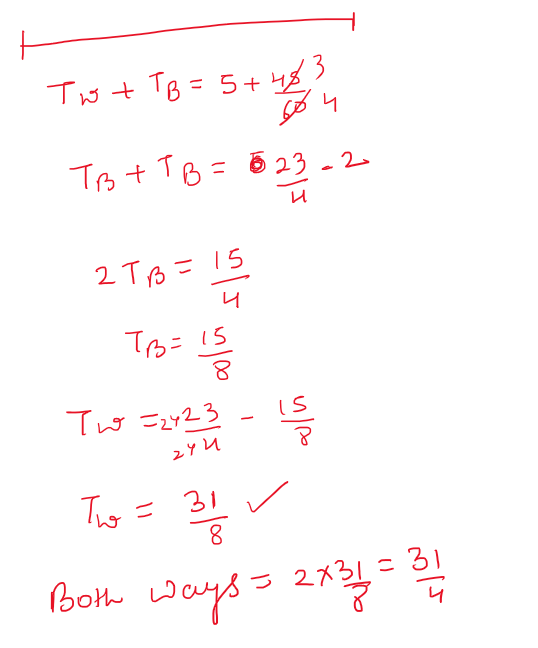 Tw + TB = 5 + 45/60 3/4
TB + TB = 23/4 - 2
2TB = 15/4
TB = 15/8
Tw = 2×23/2×4 - 15/8
Tw = 31/8 ✓
Both ways = 2×31/8 = 31/4